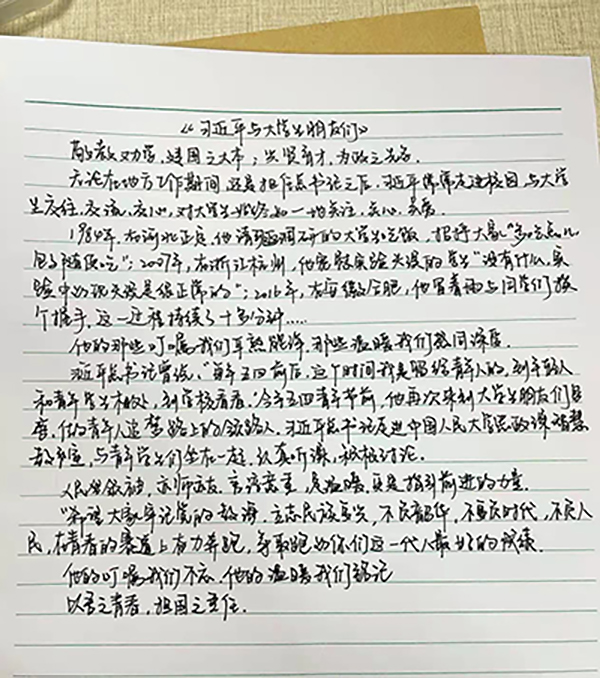 《习近平与大学生朋友们》
敬教劝学，建国之大本；兴贤育才，为政之先务。
无论在地方工作期间，还是担任总书记之后，习近平常常走进校园，与大学
生交往、交流、交心，对大学生始终如一地关注、关心、关爱。
1984年，在河北正定，他请骑调研的大学生吃饭，招呼大家“多吃点儿
随便吃”；2007年，在浙江杭州，他宽慰实验失误的学生“没有什么，实
验中出现失误是很正常的”；2016年，在安徽合肥，他冒着雨与同学们挨
个握手，这一过程持续了十多分钟……
他的那些叮嘱我们耳熟能详，那些温暖我们感同深层
习近平总书记曾说，“每年五四前后，这个时间我是留给青年人的，到年轻人
和青年学生相处，到学校看看。”今年五四青年节前，他再次来到大学生朋友们身
旁，做青年人追梦路上的领路人。习近平总书记走进中国人民大学思政课智慧
教室，与青年学生们坐在一起，认真听课，积极讨论。
人民领袖，亦师亦友，言语，是温暖，更是指引前进的力量。
“希望大家牢记党的教诲，立志民族复兴，不负韶华，不负时代，不负人
民，在青春的赛道上奋力奔跑，争取跑出你们这一代人最好的成绩。
他的叮嘱我们不忘，他的温暖我们铭记
以吾之青春，担国之重任。